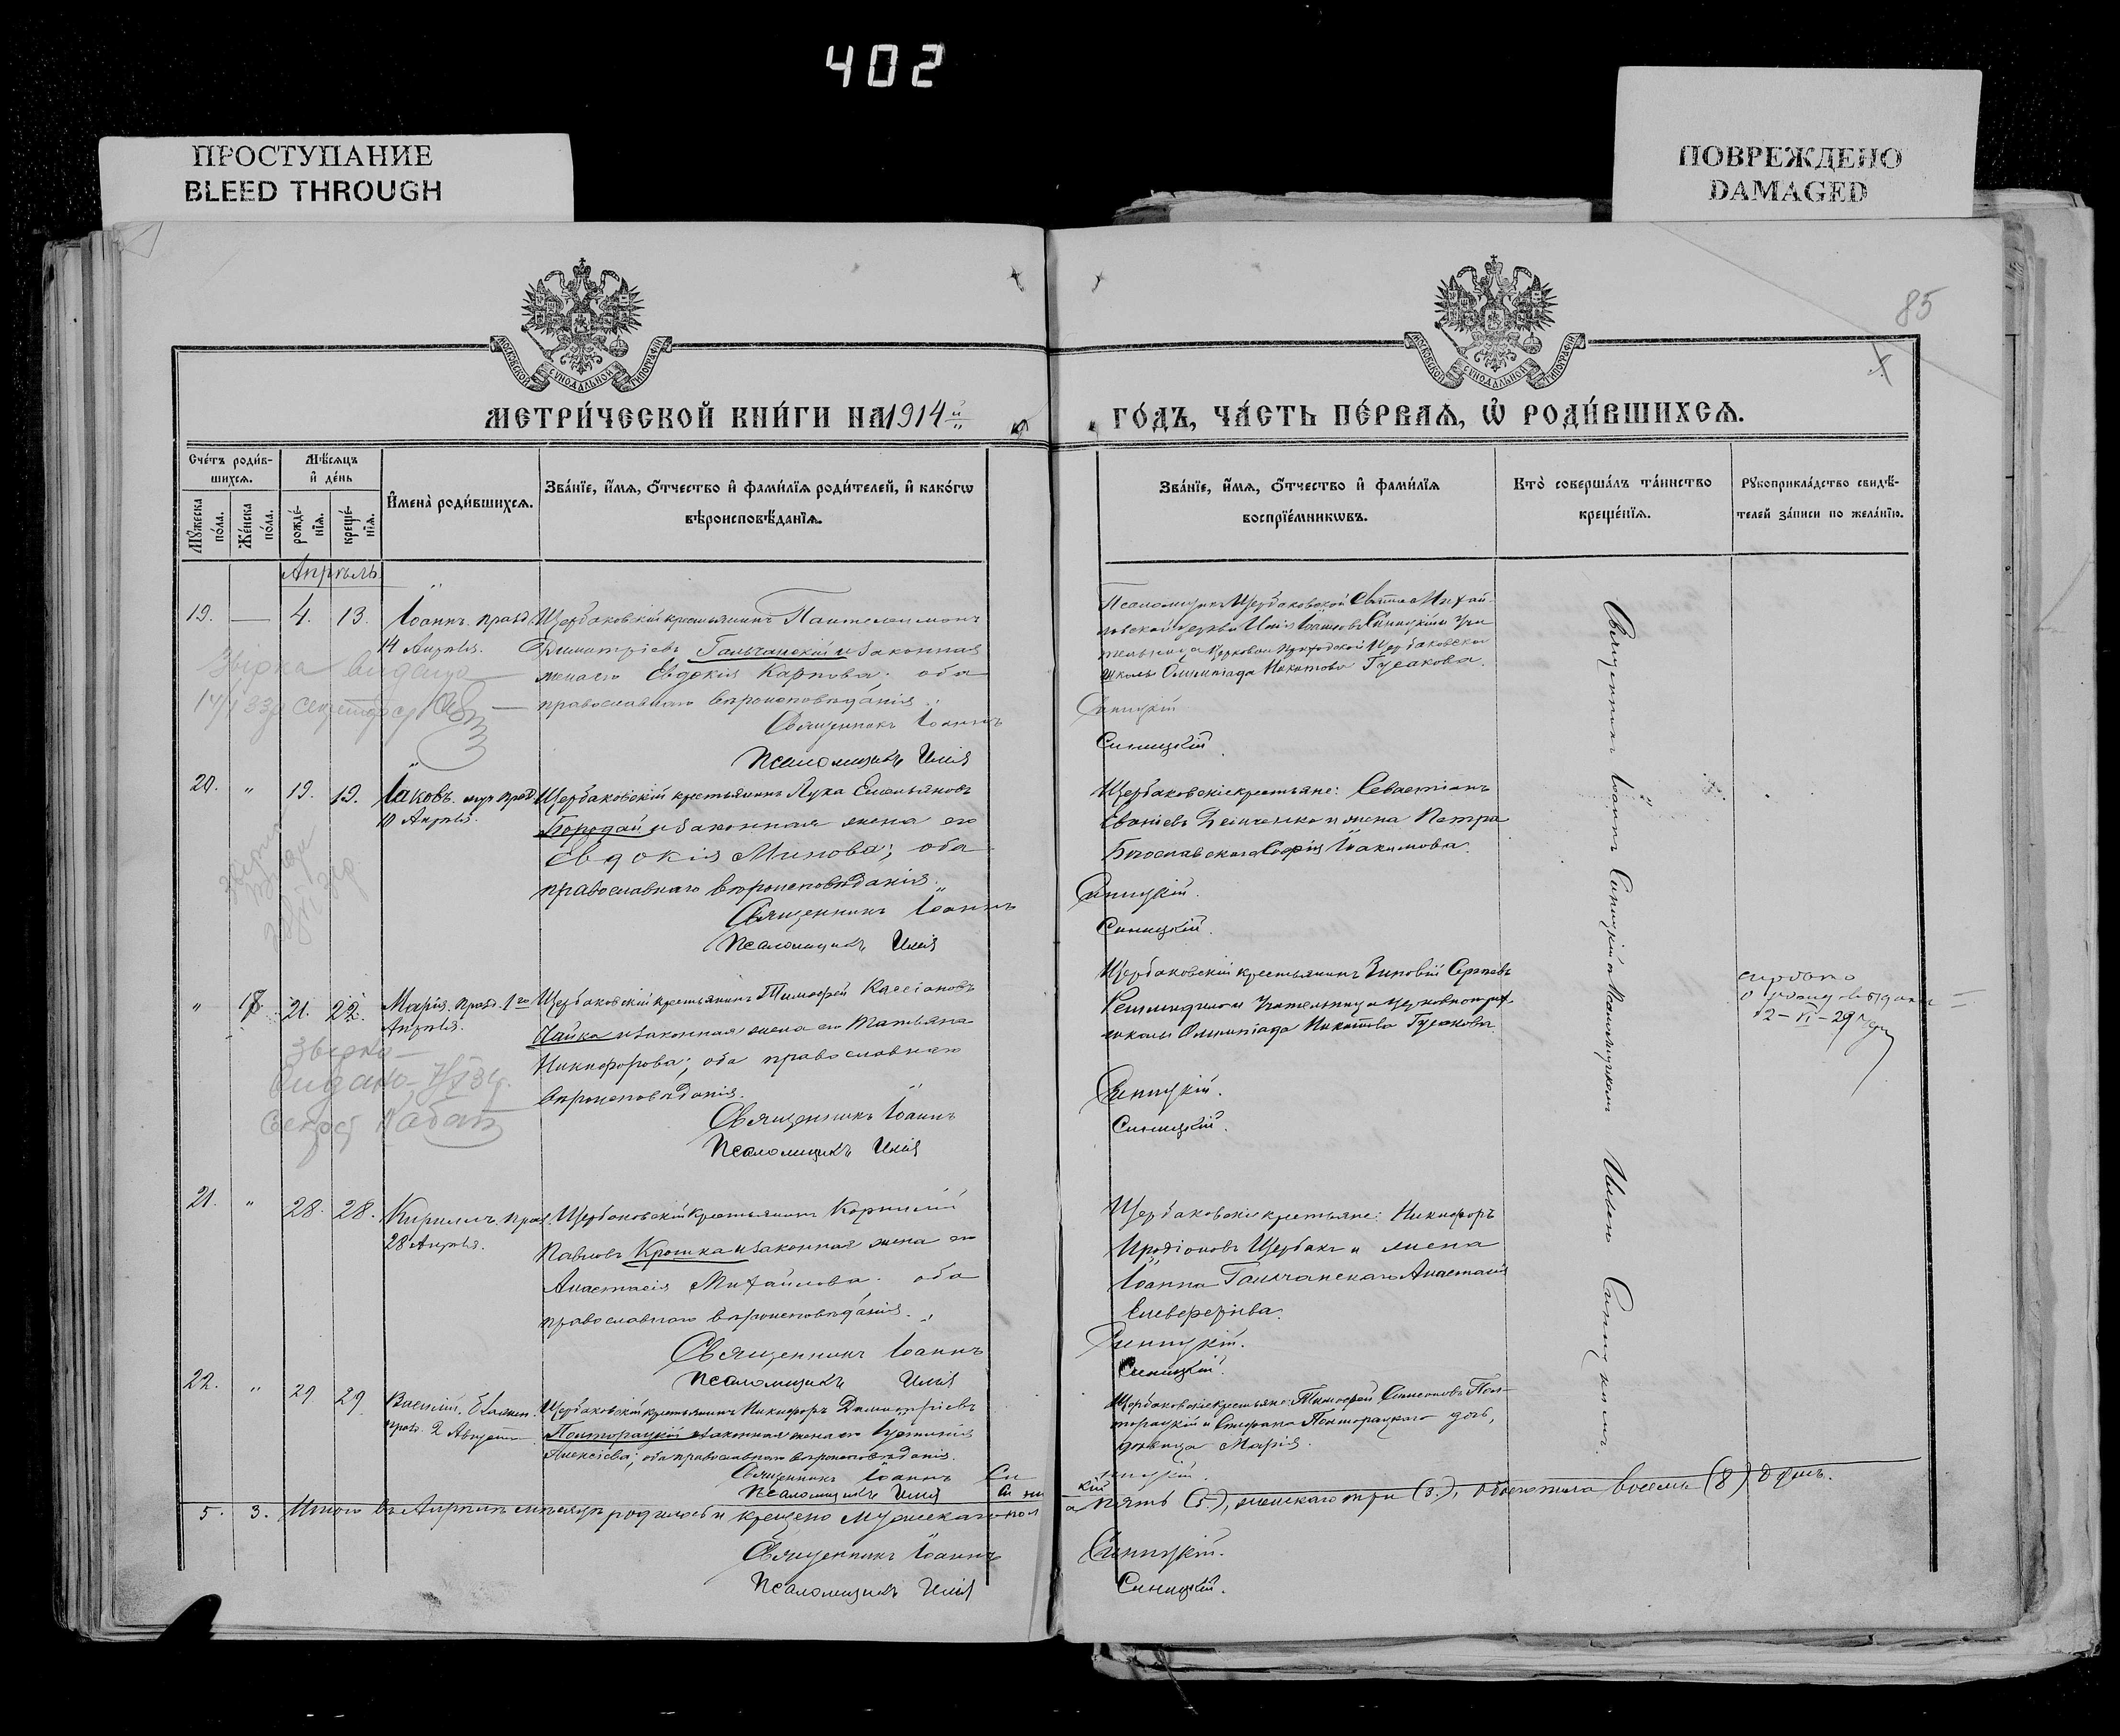 402
ПРОСТУПАНИЕ
BLEED THROUGH
ПОВРЕЖДЕНО
DAMAGED
85
МОСКОВСКОЙ СУНОДАЛЬНОЙ ТИПОГРАФІИ
МОСКОВСКОЙ СУНОДАЛЬНОЙ ТИПОГРАФІИ
МЕТРИ́ЧЕСКОЙ КНИ́ГИ НА 1914 й
ГО́ДЪ, ЧА́СТЬ ПЕ́РВАѦ, Ѡ҆ РОДИ́ВШИХСѦ.
Сче́тъ роди́в-
шихсѧ.
Мꙋ́жеска по́ла.
Же́нска по́ла.
Мѣ́сѧцъ
и҆ де́нь
рожде́-
нїѧ.
креще́-
нїѧ.
И҆мена̀ роди́вшихсѧ.
Зва́нїе, и҆́мѧ, ѻ҆́тчество и҆ фами́лїѧ роди́телей, и҆ како́гѡ
вѣроисповѣ́данїѧ.
Зва́нїе, и҆́мѧ, ѻ҆́тчество и҆ фами́лїѧ
воспрїе́мникѡвъ.
Кто̀ соверша́лъ та́инство
креще́нїѧ.
Рꙋкоприкла́дство свидѣ́-
телей за́писи по жела́нїю.
Апрѣль
19. — 4. 13. Іоаннъ. празд.
14 Апрѣля.
Щербаковскій крестьянинъ Пантелеимонъ
Димитріевъ Гальчанскій и законная
жена его Евдокія Карпова; оба
православнаго вѣроисповѣданія.
Священникъ Іоаннъ
Псаломщикъ Илія
Псаломщикъ Щербаковской Свято Михай-
ловской церкви Илія Синицкій и учи
тельница Церковно Приходской Щербаковской
школы Олимпіада Никитова Гусакова.
Синицкій
Синицкій
Звірка видана
20. " 19. 19. Іаковъ. празд
Щербаковскій крестьянинъ Лука Емельяновъ
Бородай и законная жена его
Евдокія Минова; оба
православнаго вѣроисповѣданія.
Священникъ Іоаннъ
Псаломщикъ Илія
Щербаковскіе крестьяне: Севастіанъ
и жена Петра
Богославскаго Софія Іоакимова.
Синицкій.
Синицкій.
" 18. 21. 22. Марія. празд. 1го
Апрѣля.
Щербаковскій крестьянинъ Тимофей Кассіановъ
Чайка и законная жена его Татьяна
Никифорова; оба православнаго
вѣроисповѣданія.
Священникъ Іоаннъ
Псаломщикъ Илія
Щербаковскій крестьянинъ Зиновій Сергѣевъ
и учительница церковно прих.
школы Олимпіада Никитова Гусакова.
Синицкій.
Синицкій.
12-VI-29
Звірка
видано
21. " 28. 28. Кириллъ. празд.
28 Апрѣля.
Щербаковскій крестьянинъ Корнилій
Павловъ Крошка и законная жена его
Анастасія Михайлова; оба
православнаго вѣроисповѣданія.
Священникъ Іоаннъ
Псаломщикъ Илія
Щербаковскіе крестьяне: Никифоръ
Иродіоновъ Щербакъ и жена
Іоанна Гальчанскаго Анастасія
Елевферіева.
Синицкій.
Синицкій.
22. " 29 29 Василій.
празд. 2 Августа
Щербаковскій крестьянинъ Никифоръ Димитріевъ
Полторацкій и законная жена его
Алексіева; оба православнаго вѣроисповѣданія.
Священникъ Іоаннъ
Псаломщикъ Илія
Щербаковскіе крестьяне: Тимофей Симеоновъ Пол-
торацкій и Стефана Полторацкаго дочь,
дѣвица Марія.
Священникъ Іоаннъ Синицкій и Псаломщикомъ Иліею Синицкимъ.
5. 3. Итого въ Апрѣлѣ мѣсяцѣ родилось и крещено мужескаго пол
а пять (5), женскаго три (3), обоего пола восемь (8) душъ.
Священникъ Іоаннъ Синицкій.
Псаломщикъ Илія Синицкій.